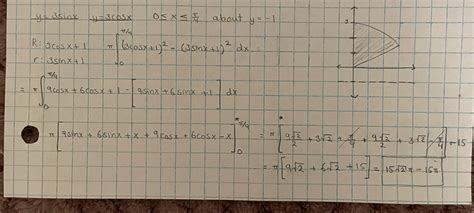 y=3sinx y=3cosx 0≤x≤π/4 about y=-1
R: 3cosx+1 π∫₀^π/4 (3cosx+1)² - (3sinx+1)² dx
r: 3sinx+1
= π∫₀^π/4 9cosx + 6cosx + 1 - [9sinx + 6sinx + 1] dx
π[9sinx + 6sinx + x + 9cosx + 6cosx - x]₀^π/4 = π[9√2/2 + 3√2 + π/4 + 9√2/2 + 3√2 - π/4 - 15
= π[9√2 + 6√2 + 15] = 15√2π - 15π